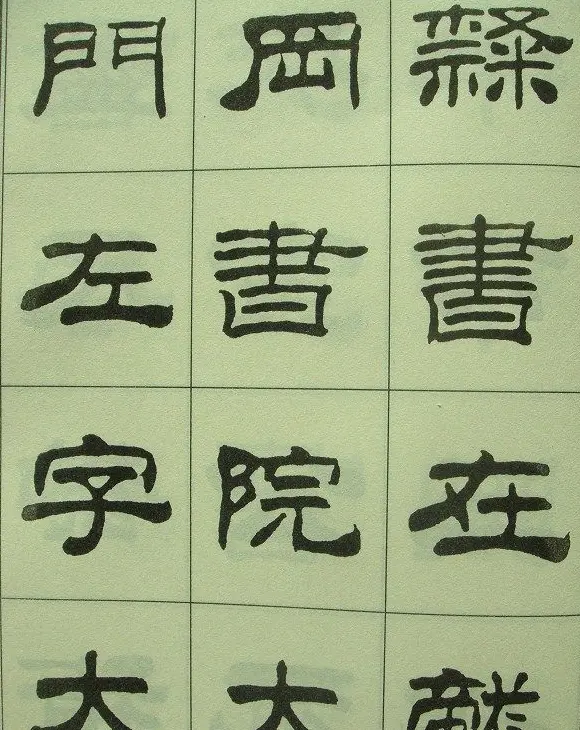 隸書在
岡書院大
門左字大